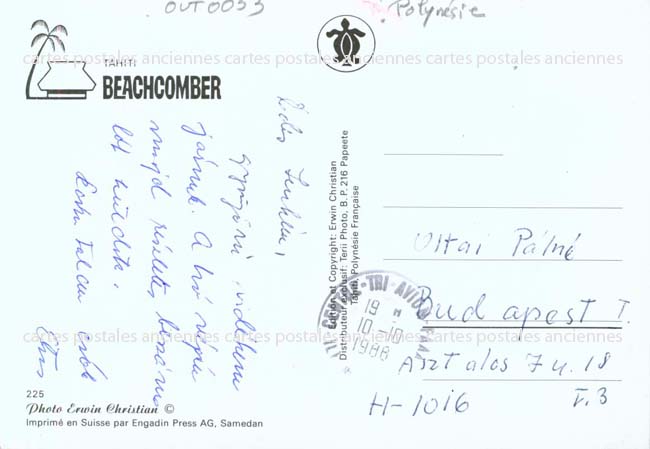 OUT0053
Polynésie
TAHITI
BEACHCOMBER
gyönyörű vidéken
járunk. A hó végén
majd részletes beszámo
lót küldök.
225
Photo Erwin Christian ©
Imprimé en Suisse par Engadin Press AG, Samedan
Edition et Copyright: Erwin Christian
Distributeur exclusif: Terii Photo, B. P. 216 Papeete
Tahiti, Polynésie Française
TRI-AVION
19 H
10-10
1988
Pálné
Budapest I
Asztalos J u. 18
I. 3
H-1016
cartes postales anciennes cartes postales anciennes cartes postales anciennes
cartes postales anciennes cartes postales anciennes cartes postales anciennes